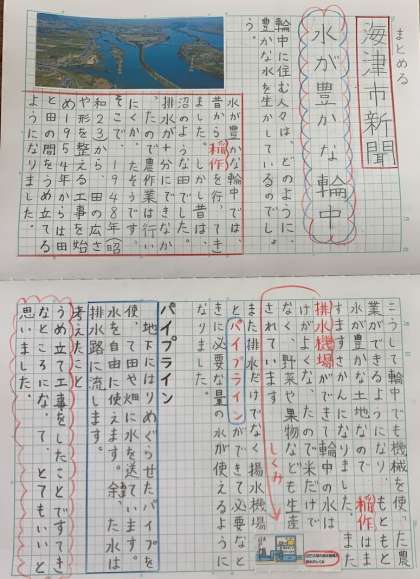 まとめる
海津市新聞
水が豊かな輪中
輪中に住む人々は、どのように、
豊かな水を生かしているのでしょ
う。
水が豊かな輪中では、
昔から稲作を行ってき
ました。しかし昔は、
沼のような田でした。
排水が十分にできなか
ったので農作業は行い
にくかったそうです。
そこで、1948年(昭
和23)から、田の広さ
や形を整える工事を始
め1954年からは田
と田の間をうめ立てる
ようになりました。
こうして輪中でも機械を使った農
業ができるようになり、もともと
水が豊かな土地なので稲作はま
すますさかんになりました。また
排水機場ができて輪中の水は
けがよくなったので米だけで
なく、野菜や果物なども生産
されています
しくみ
また排水だけでなく揚水機場
とパイプラインができて必要なと
きに必要な量の水が使えるように
なりました。
パイプライン
地下にはりめぐらせたパイプを
使って田や畑に水を送っています。
水を自由に使えます。余った水は
排水路に流します。
考えたこと
うめ立て工事をしたことですてき
なところになって、とてもいいと
思いました。